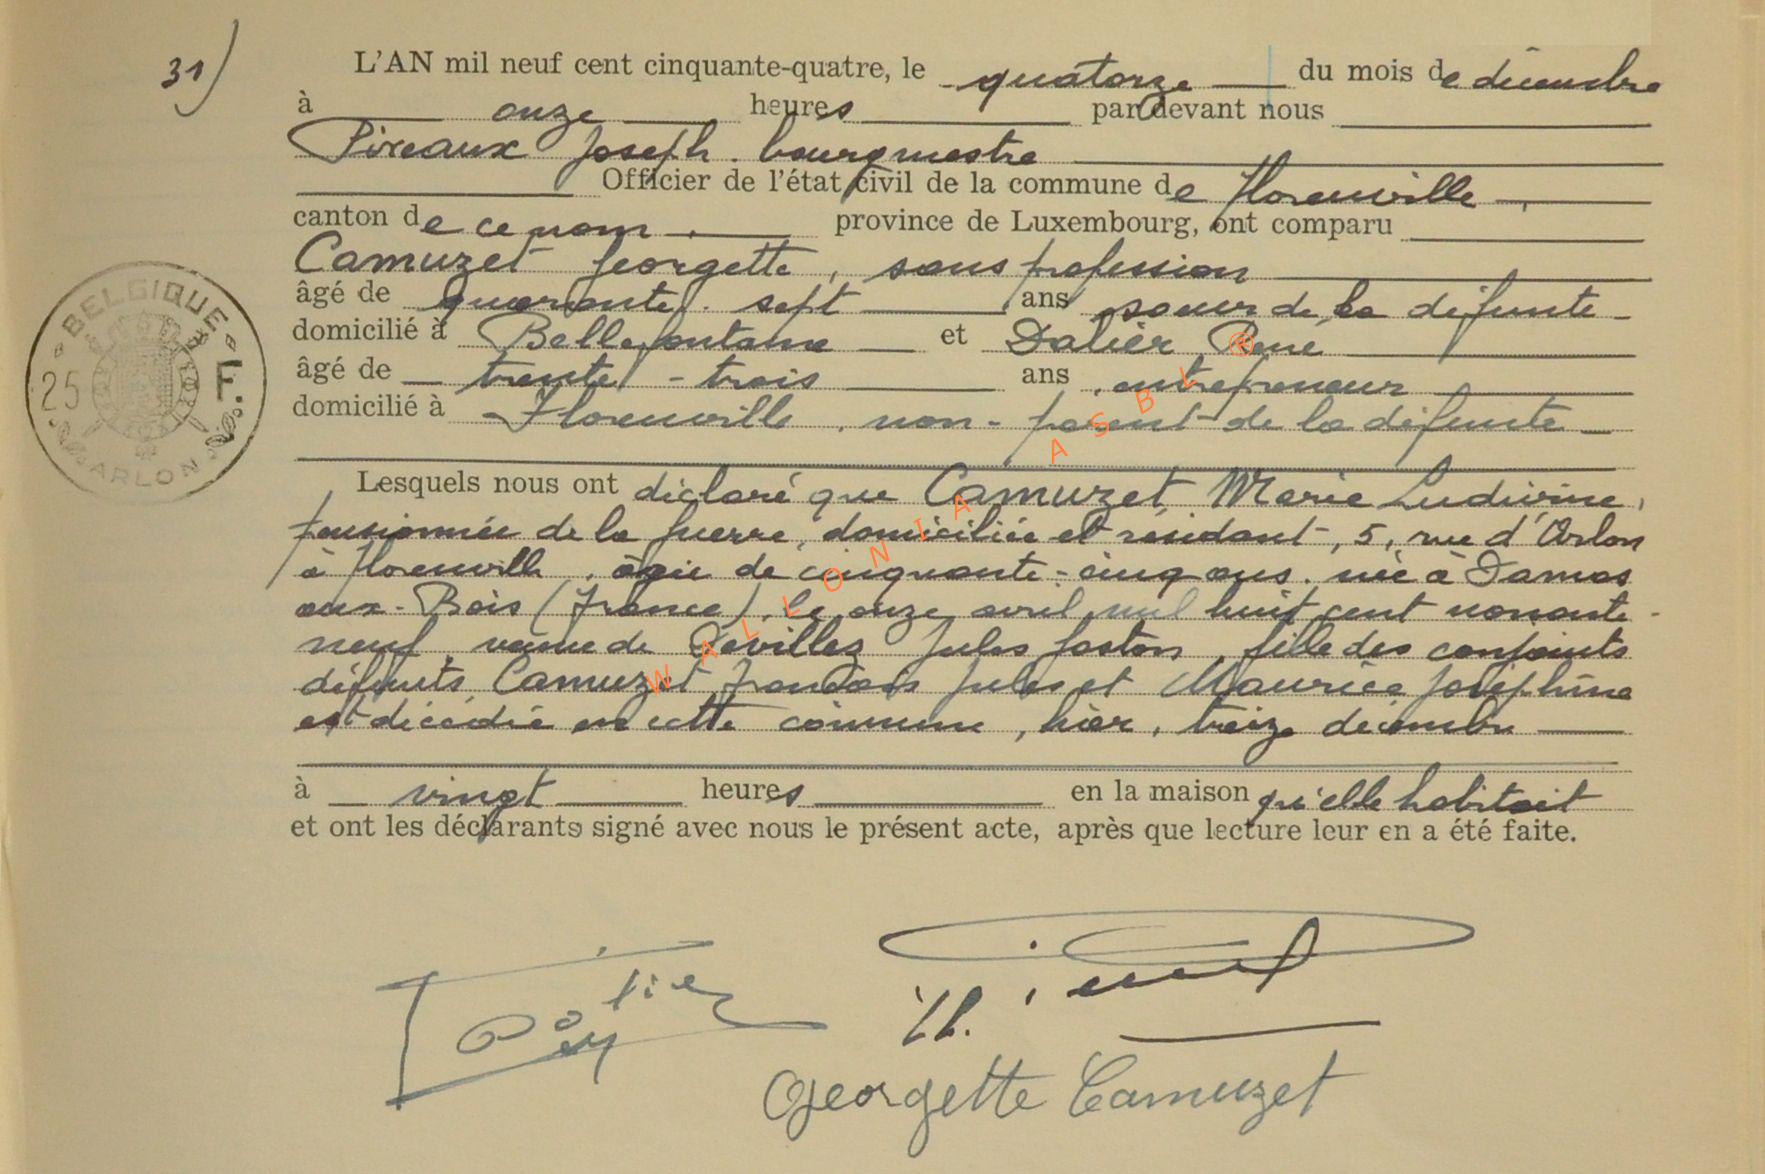 31) L'AN mil neuf cent cinquante-quatre, le quatorze du mois de décembre
à onze heures par devant nous
Pireaux Joseph. bourgmestre
Officier de l'état civil de la commune de Florenville,
canton de ce nom. province de Luxembourg, ont comparu
Camuzet Georgette, sans profession
âgé de quarante-sept ans soeur de la défunte
domicilié à Bellefontaine et Dalier René
âgé de trente-trois ans, entrepreneur
domicilié à Florenville, non-parent de la défunte
Lesquels nous ont déclaré que Camuzet Marie Ludivine,
pensionnée de la guerre, domiciliée et résidant, 5, rue d'Arlon
à Florenville, âgée de cinquante-cinq ans. née à Damas
aux-Bois (France), le onze avril mil huit cent nonante-
neuf, veuve de Devillez Jules Gaston, fille des conjoints
défunts Camuzet François Jules et Maurice Joséphine
est décédée en cette commune, hier, treize décembre
à vingt heures en la maison qu'elle habitait
et ont les déclarants signé avec nous le présent acte, après que lecture leur en a été faite.
BELGIQUE
25 F.
ARLON
WALLONIA ASBL ®
Georgette Camuzet